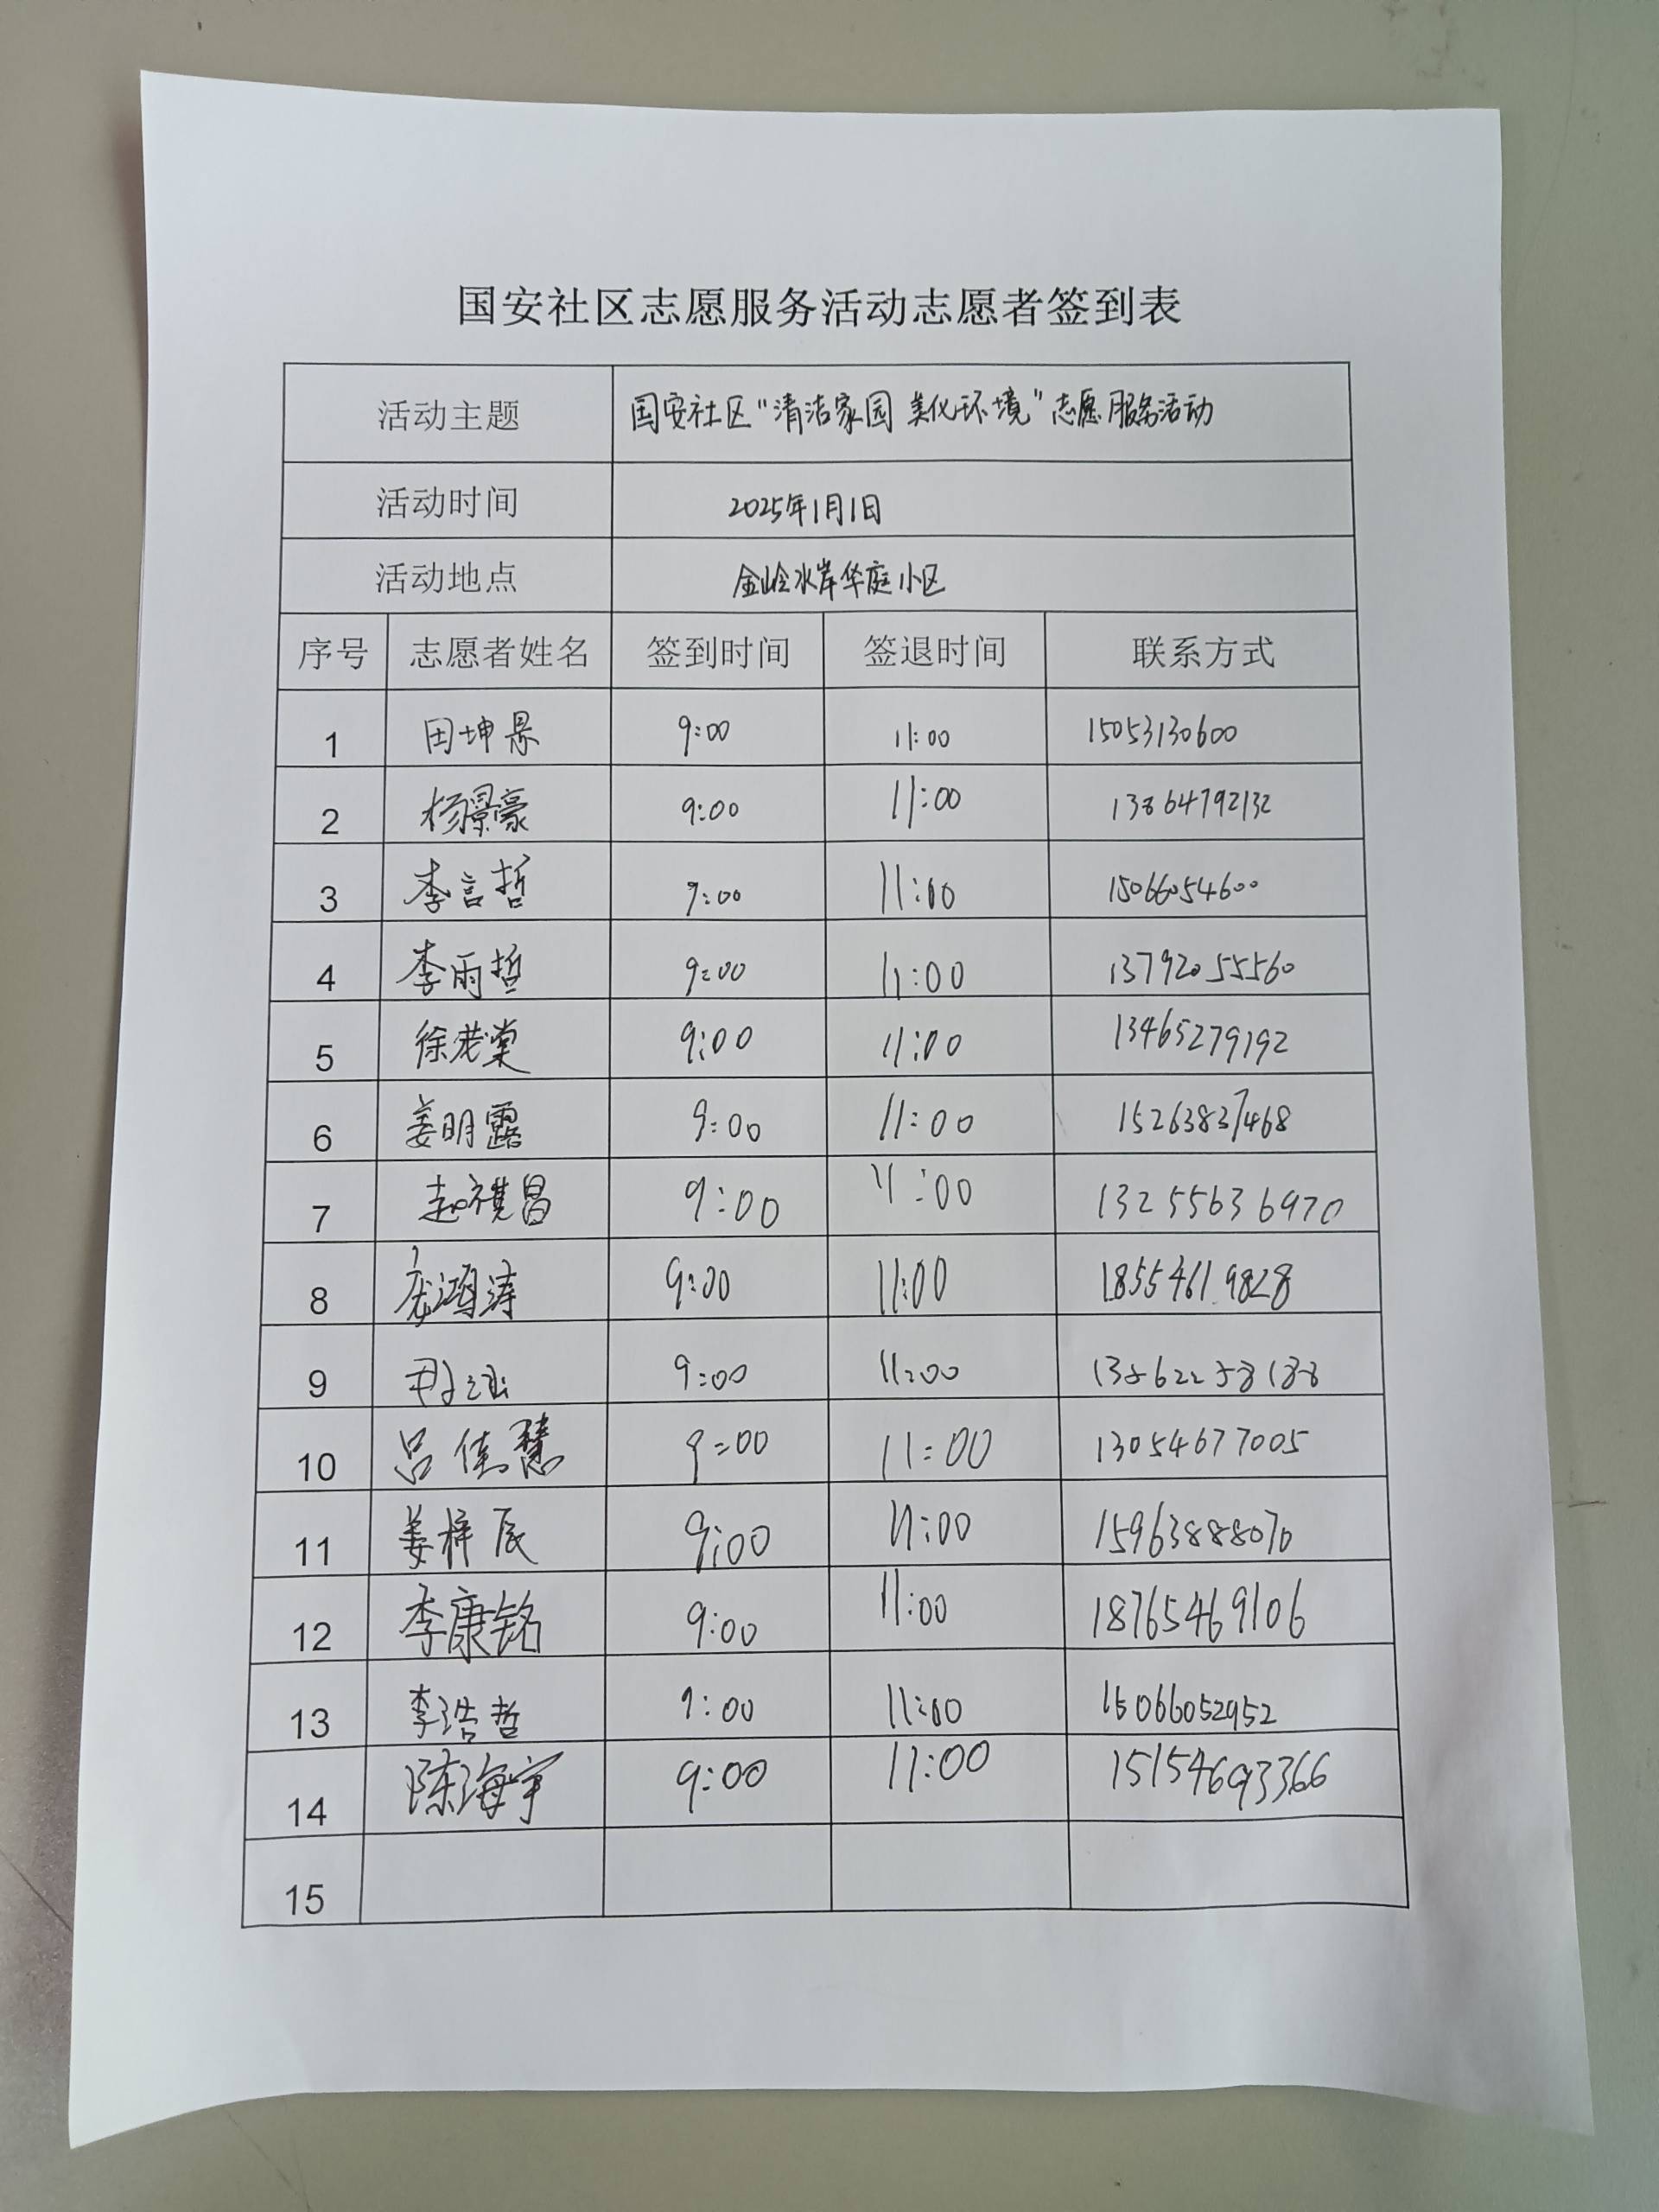 国安社区志愿服务活动志愿者签到表
活动主题 国安社区“清洁家园 美化环境”志愿服务活动
活动时间 2025年1月1日
活动地点 金岭水岸华庭小区
序号 志愿者姓名 签到时间 签退时间 联系方式
1 田坤景 9:00 11:00 15053130600
2 杨景豪 9:00 11:00 13864792132
3 李言哲 9:00 11:00 15066054600
4 李雨哲 9:00 11:00 13792055560
5 徐 棠 9:00 11:00 13465279192
6 姜明露 9:00 11:00 15263837468
7 赵祺昌 9:00 11:00 13255636970
8 庞鸿涛 9:00 11:00 18554619828
9 9:00 11:00 13562258188
10 吕佳慧 9:00 11:00 13054677005
11 姜梓辰 9:00 11:00 15963888070
12 李康铭 9:00 11:00 18765469106
13 李浩哲 9:00 11:00 15066052952
14 陈海宇 9:00 11:00 15154693366
15